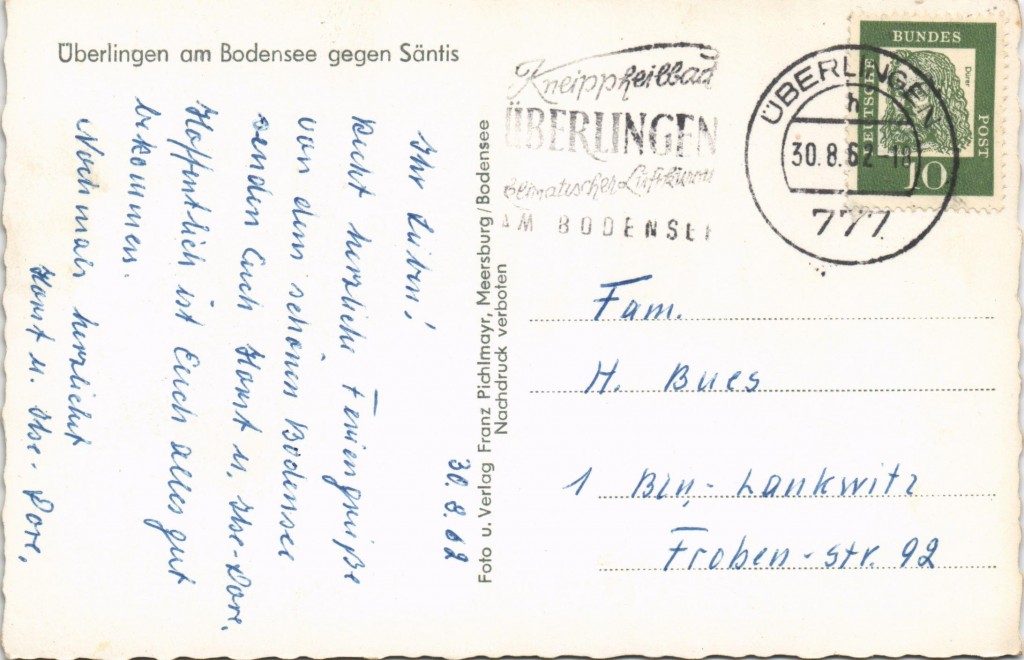 Überlingen am Bodensee gegen Säntis
30. 8. 62
Ihr Lieben!
Recht herzliche Feriengrüße
von dem schönen Bodensee
senden Euch Horst u. Ilse-Dore.
Hoffentlich ist Euch alles gut
bekommen.
Nochmals herzlichst
Horst u. Ilse-Dore.
Foto u. Verlag Franz Pichlmayr, Meersburg/Bodensee
Nachdruck verboten
Kneippheilbad
ÜBERLINGEN
heilklimatischer Luftkurort
AM BODENSEE
ÜBERLINGEN
h
30.8.62-18
777
DEUTSCHE
BUNDES
POST
Dürer
10
Fam.
H. Bues
1 Bln-Lankwitz
Froben-str. 92